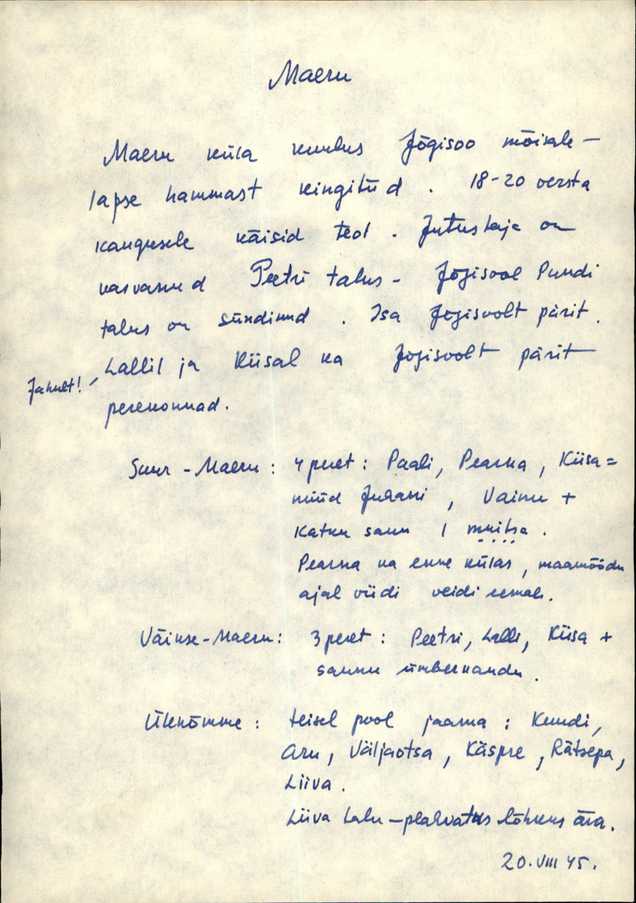 Maeru
Maeru küla kuulus Jõgisoo mõisale –
lapse hammast kingitud. 18-20 versta
kaugusele käisid teol. Jutustaja on
kasvanud Peetri talus – Jõgisool Pundi
talus on sündinud. Isa Jõgisoolt pärit.
Lallil ja Kiisal ka Jõgisoolt pärit
Jahult! –
perekonnad.
Suur-Maeru: 4 peret: Paali, Pearna, Kiisa =
nüüd Juhani, Vainu +
Katku saun 1
Pearna ka enne külas, maamõõdu
ajal viidi veidi eemale.
Väikse-Maeru: 3 peret: Peetri, Lalli, Kiisa +
sauna ümberkaudu.
Üksnõmme: teisel pool jaama: Kuudi,
Aru, Väljaotsa, Käspre, Rätsepa,
Liiva.
Liiva talu – lõhkus ära.
20.VIII 45.